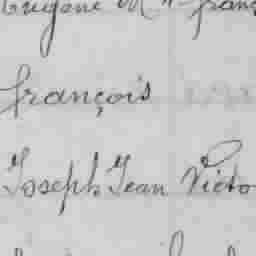 Eugène M
françois
Joseph Jean Victo